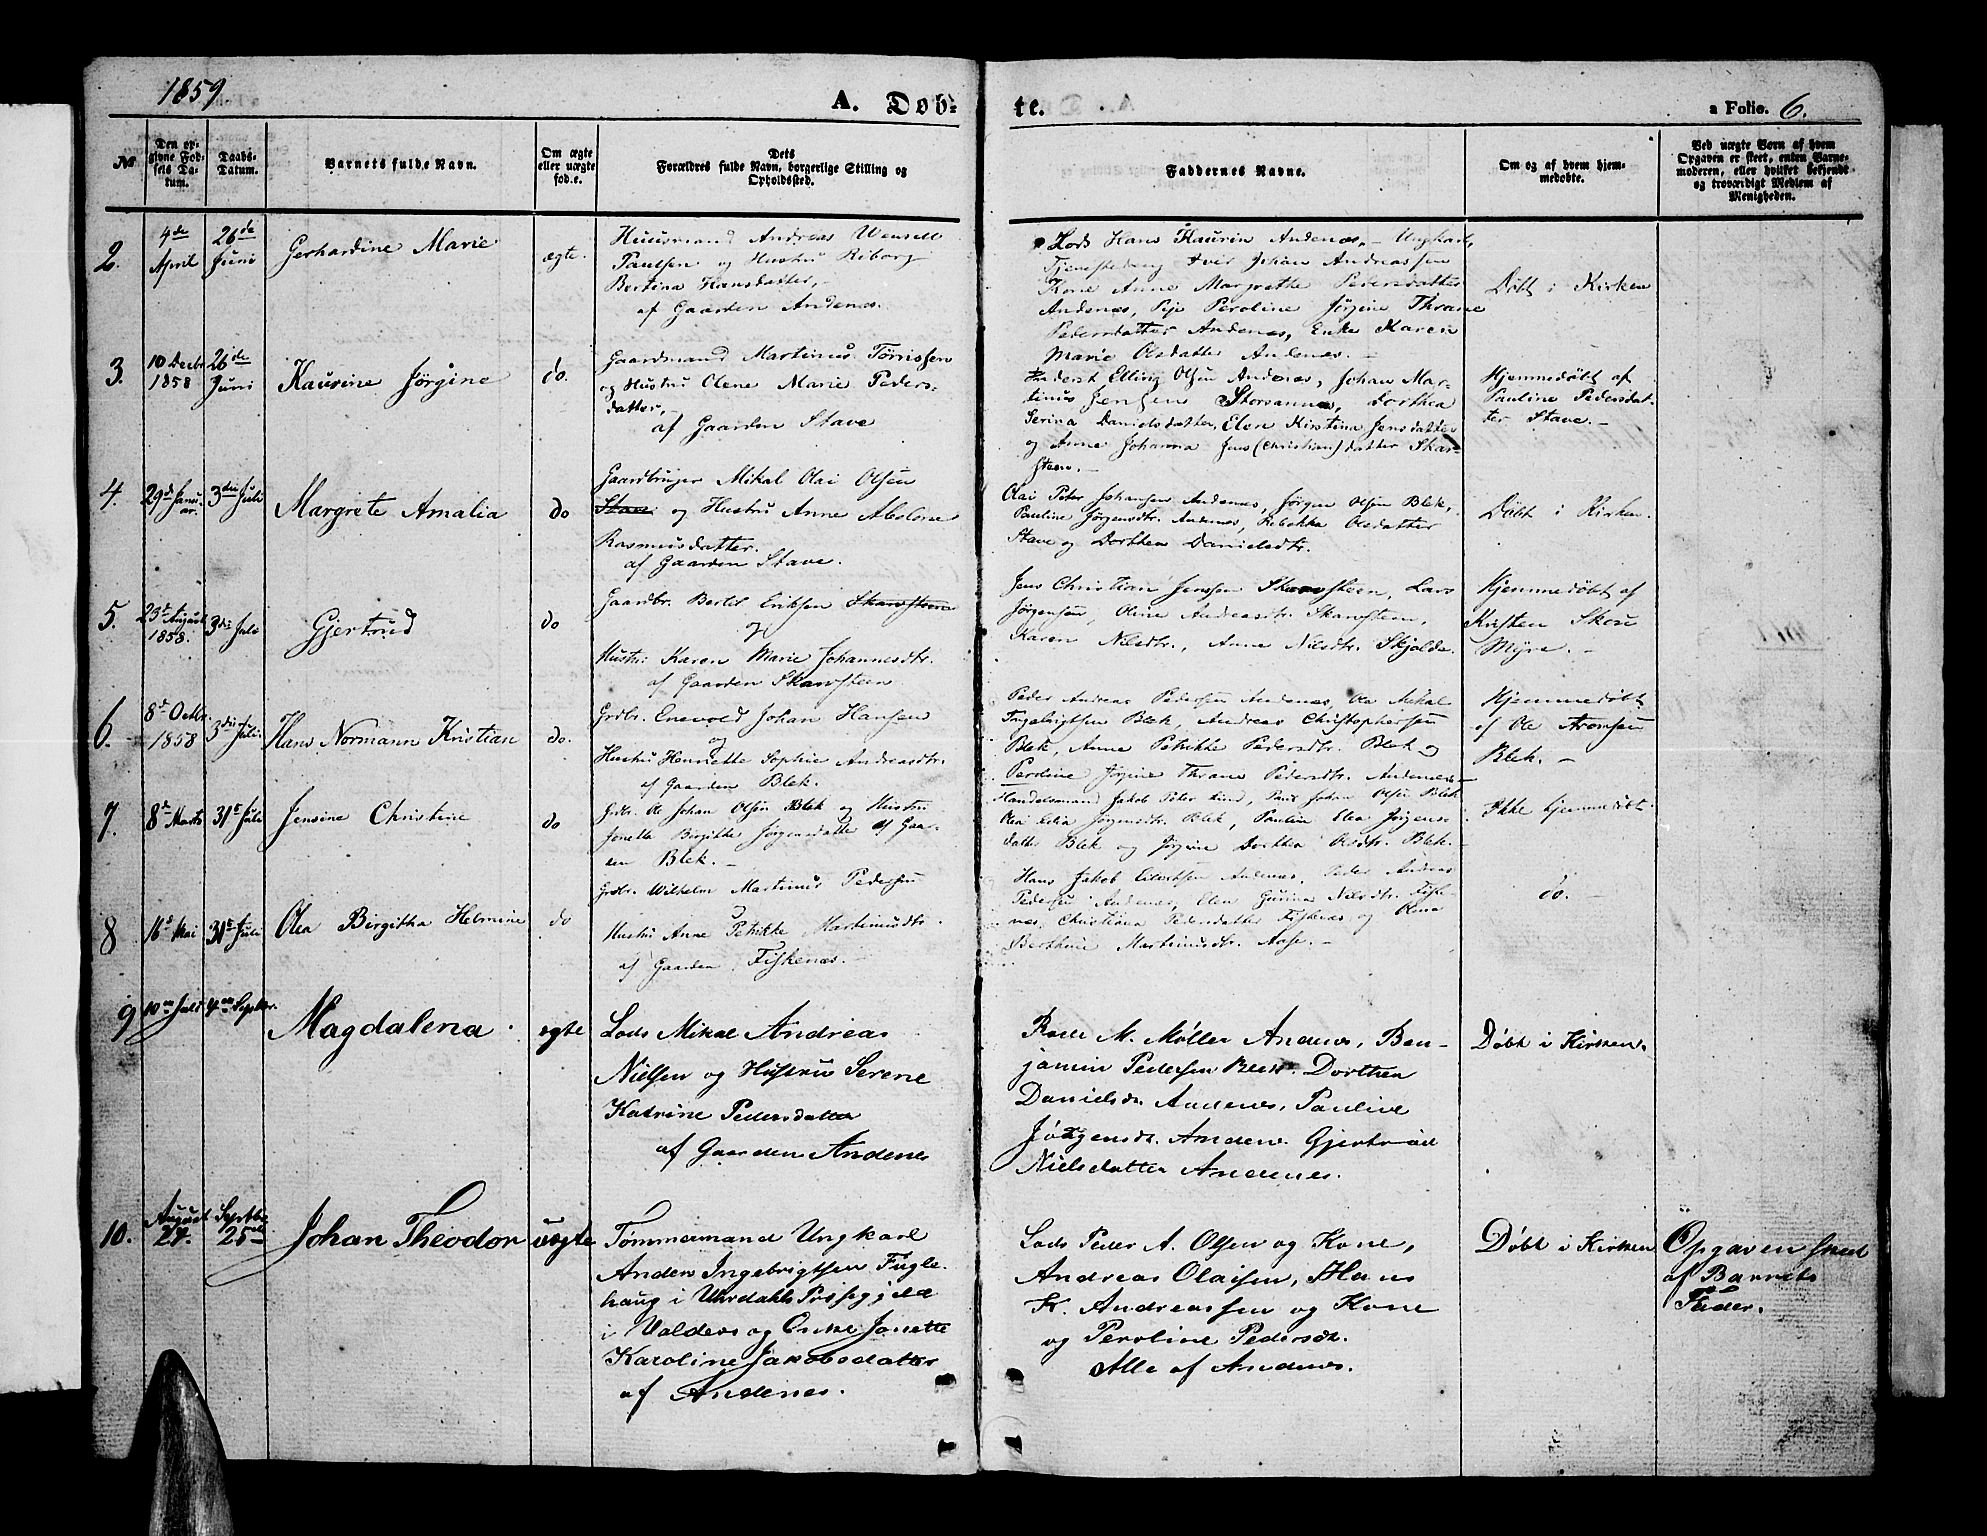 1859
A. Døb-
te.
a Folio. 6.
No
Den op-
givne Fød-
sels Da-
tum.
Daabs-
Datum.
Barnets fulde Navn.
Om ægte
eller uægte
fød.e.
Dets
Forældres fulde Navn, borgerlige Stilling og
Opholdssted.
Faddernes Navne.
Om og af hvem hjem-
medøbte.
Ved uægte Børn af hvem
Opgaven er skeet, enten Barne-
moderen, eller hvilket bekjendt
og troværdigt Medlem af
Menigheden.
2.
4de
April
26de
Juni
Gerhardine Marie
ægte.
Huusmand Andreas Wensell
Paulsen og Hustru Riborg
Bertina Hansdatter,
af Gaarden Andenæs.
Lods Hans Kaurin Andenæs, Ungkarl,
Johan Andreassen
Kone Anne Margrethe Pedersdatter
Andenæs, Pige Peroline Jørgine Thrane
Pedersdatter Andenæs, Enke Karen
Marie Olsdatter Andenæs. -
Døbt i Kirken
3.
10 Decbr
1858
26de
Juni
Kausine Jørgine
do.
Gaardmand Martinus Tørrissen
og Hustru Olene Marie Peders-
datter,
af Gaarden Stave
Elling Olsen Andenæs, Johan Mar-
tinus Jensen Dorthea
Serina Danielsdatter, Elen Kirstina Jensdatter
og Anne Johanna Jens (Christian) datter Skar-
steen. -
Hjemmedøbt af
Pauline Pedersdat-
ter Stave. -
4.
29d Janu-
ar.
3die Juli
Margrete Amalia
do
Gaardbruger Mikal Olai Olsen
Stave og Hustru Anne Abelone
Rasmusdatter.
af Gaarden Stave.
Olai Peter Johansen Andenæs, Jørgen Olsen Blek,
Pauline Jørgensdtr. Andenæs, Rebekka Olsdatter
Stave og Dorthea Danielsdtr.
Døbt i Kirken.
5.
23d August
1858.
3die Juli
Gjertrud
do
Gaardbr. Bertel Eriksen Skarsteen
og
Hustr: Karen Marie Johannesdtr.
af Gaarden Skarsteen
Jens Christian Jenssen Skarsteen, Lars
Jørgensen, Oline Andreasdtr. Skarsteen,
Karen Nilsdtr., Anne Nilsdtr. Skjolde.
Hjemmedøbt af
Kristen Skou
Myre. -
6.
8d Octbr
1858
3die Juli
Hans Normann Kristian
do.
Grdbr. Enevold Johan Hansen
og
Hustru Henriette Sophie Andreasdtr.
af Gaarden Blek.
Peder Andreas Pedersen Andenæs, Ole Mikal
Ingebrigtsen Blek, Andreas Christophersen
Blek, Anne Petrikke Pedersdtr. Blek og
Peroline Jørgine Thrane Pedersdtr. Andenæs. -
Hjemmedøbt
af Ole Aronsen
Blek. -
7.
8d Marts
31t Juli
Jensine Christine
do
Grdbr. Ole Johan Olsen Blek og Hustru
Jonetta Birgitte Jørgensdatter af Gaar-
den Blek. -
Handelsmand Jakob Peter Lund, Paul Johan Olsen Blek
Olea Jørgensdtr. Blek, Pauline Elea Jørgens-
datter Blek og Jørgine Dorthea Olsdtr. Blek. -
Ikke hjemmedøbt.
8
16d Mai
31t Juli
Olea Birgitha Helmine
do
Grdbr. Wilhelm Martinus Pedersen
og
Hustru Anne Petrikke Martinusdtr.
af Gaarden Fiskenæs. -
Hans Jakob Eilertsen Andenæs, Peder Andreas
Pedersen Andenæs, Elen Gurina Nilsdtr. Fiske-
næs, Christiana Pedersdatter Fiskenæs og Olena
Berthine Martinusdtr. Aase. -
do. -
9
10de Juli
4de Septbr.
Magdalena
egte
Lods Mikal Andreas
Nielsen og Hustru Serene
Katrine Pedersdatter
af Gaarden Andenes
M. Møller Andenes, Ben-
jamin Pedersen Blek. Dorthea
Danielsdr. Andenes, Pauline
Jørgensdr. Andenes. Gjertrud
Nielsdatter Andenes.
Døbt i Kirken.
10.
August
24.
Septbr
25de
Johan Theodor
uegte
Tømmermand Ungkarl
Anders Ingebrigtsen Fugle-
haug i Uurdahls Præsegjeld
i Valders og Enke Jonette
Karoline Jakobsdatter
af Andenes.
Lods Peder A. Olsen og Kone,
Andreas Olaisen, Hans
K. Andreassen og Kone
og Peroline Pedersdr.
Alle af Andenes.
Døbt i Kirken
Opgaven skeet
af Barnets
Fader.